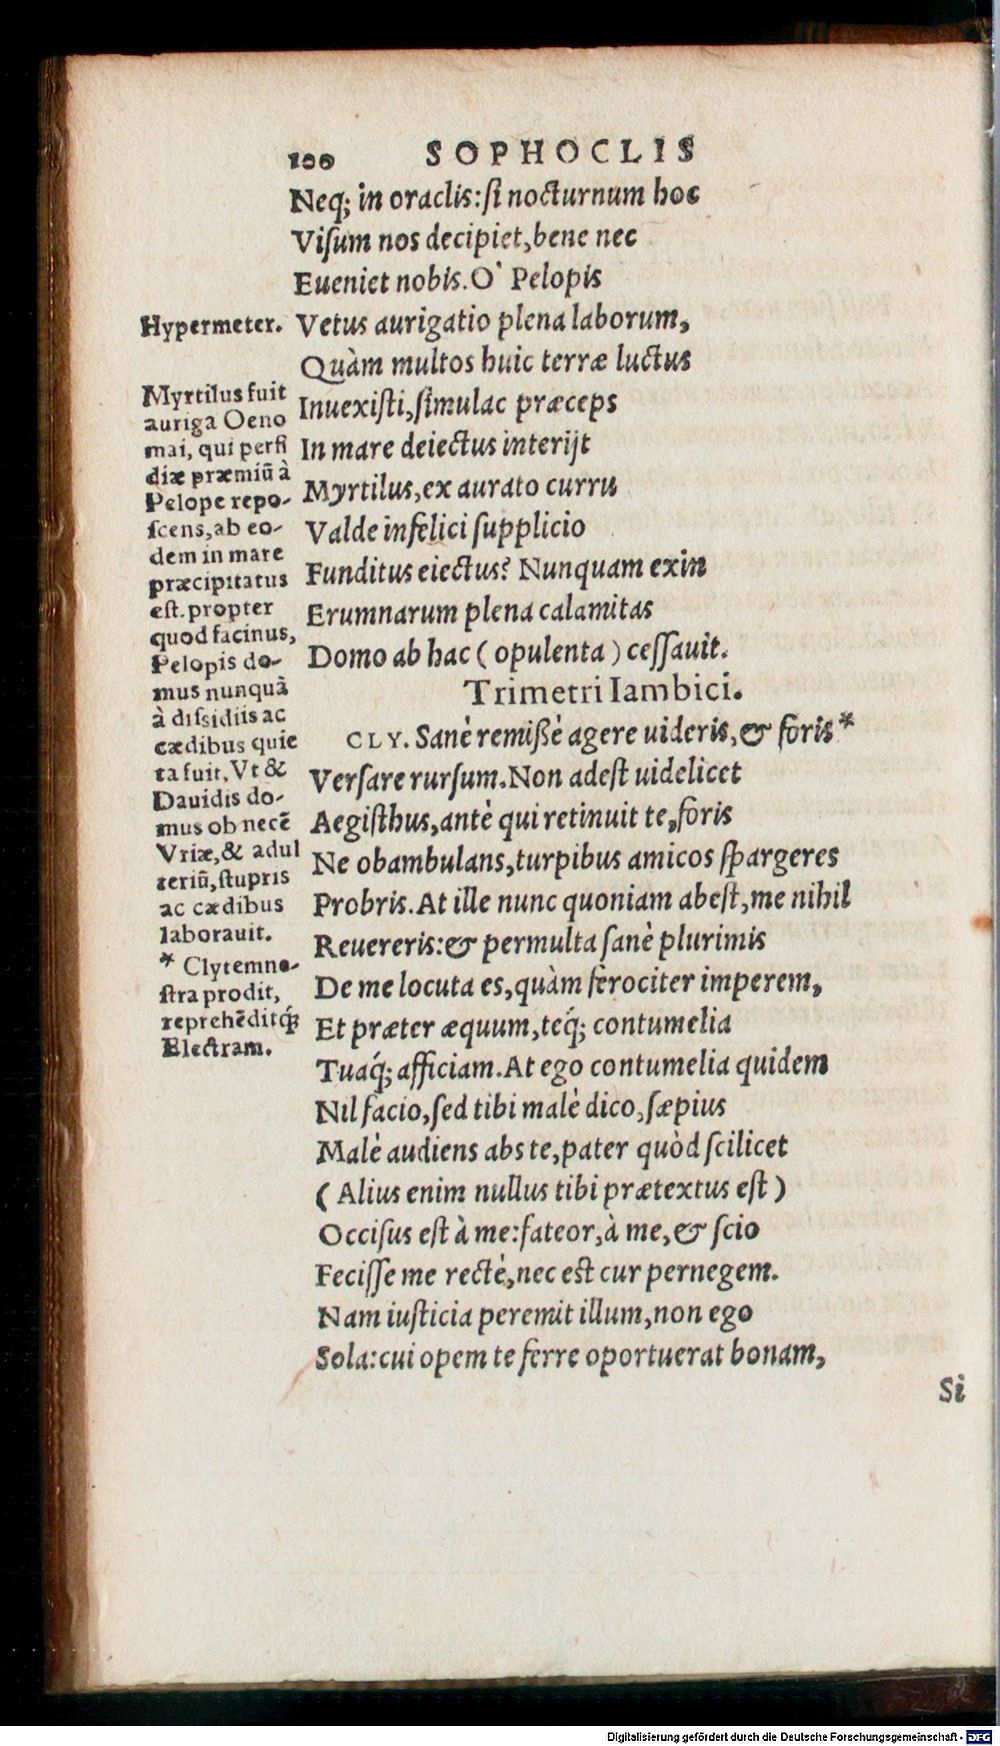 100 SOPHOCLIS
Neq; in oraclis: ſi nocturnum hoc
Viſum nos decipiet, bene nec
Eueniet nobis. O' Pelopis
Hypermeter.
Vetus aurigatio plena laborum,
Quàm multos huic terræ luctus
Inuexiſti, ſimulac præceps
In mare deiectus interijt
Myrtilus, ex aurato curru
Valde infelici ſupplicio
Funditus eiectus? Nunquam exin
Erumnarum plena calamitas
Domo ab hac ( opulenta ) ceſſauit.
Myrtilus fuit
auriga Oeno
mai, qui perfi
diæ præmiũ à
Pelope repo-
ſcens, ab eo-
dem in mare
præcipitatus
eſt. propter
quod facinus,
Pelopis do-
mus nunquã
à diſsidiis ac
cædibus quie
ta fuit, Vt &
Dauidis do-
mus ob necẽ
Vriæ, & adul
teriũ, ſtupris
ac cædibus
laborauit.
* Clytemne-
ſtra prodit,
reprehẽditq́;
Electram.
Trimetri Iambici.
CLY. Sanè remißè agere uideris, & foris *
Verſare rurſum. Non adeſt uidelicet
Aegiſthus, antè qui retinuit te, foris
Ne obambulans, turpibus amicos ſpargeres
Probris. At ille nunc quoniam abeſt, me nihil
Reuereris: & permulta ſanè plurimis
De me locuta es, quàm ferociter imperem,
Et præter æquum, teq́; contumelia
Tuaq́; afficiam. At ego contumelia quidem
Nil facio, ſed tibi malè dico, ſæpius
Malè audiens abs te, pater quòd ſcilicet
( Alius enim nullus tibi prætextus eſt )
Occiſus eſt à me: fateor, à me, & ſcio
Feciſſe me rectè, nec est cur pernegem.
Nam iuſticia peremit illum, non ego
Sola: cui opem te ferre oportuerat bonam,
Si
Digitalisierung gefördert durch die Deutsche Forschungsgemeinschaft - DFG